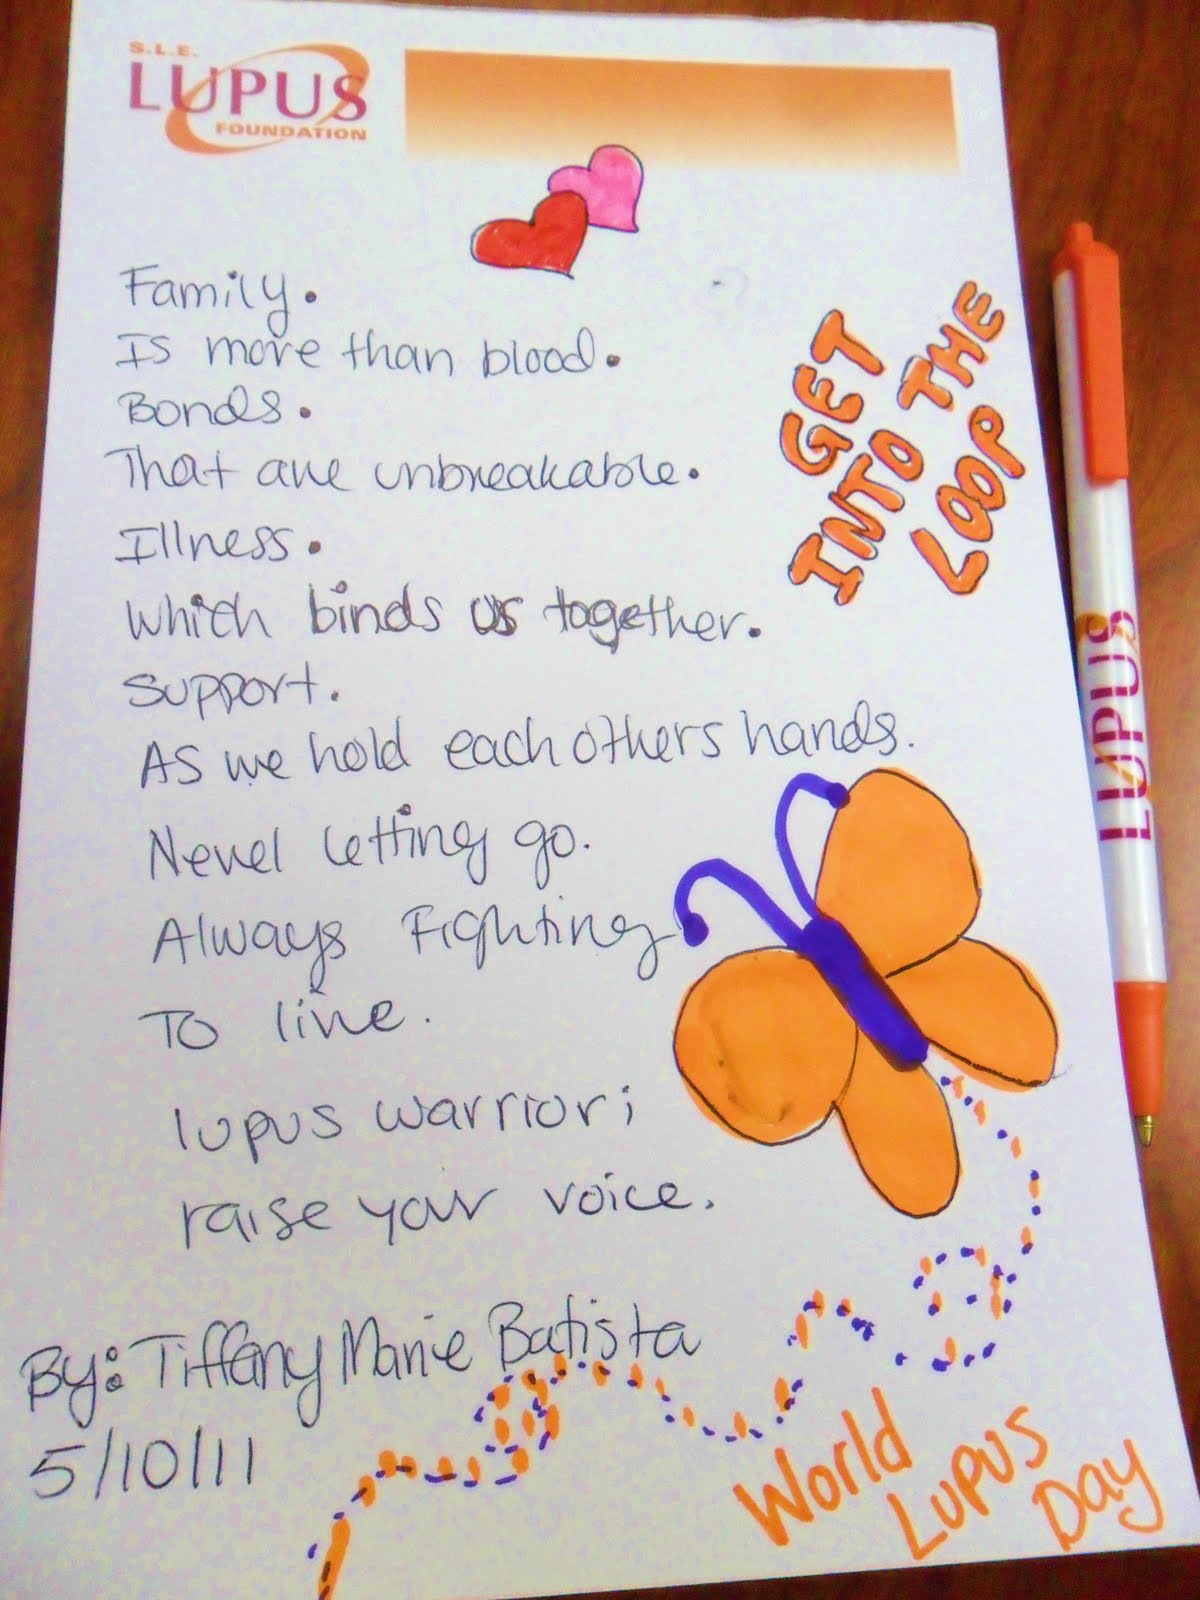 S.L.E.
LUPUS
FOUNDATION
Family.
Is more than blood.
Bonds.
That are unbreakable.
Illness.
Which binds us together.
Support.
As we hold each others hands.
Never letting go.
Always Fighting
To live.
lupus warrior;
raise your voice.
By: Tiffany Marie Batista
5/10/11
GET
INTO THE
LOOP
LUPUS
World
Lupus
Day